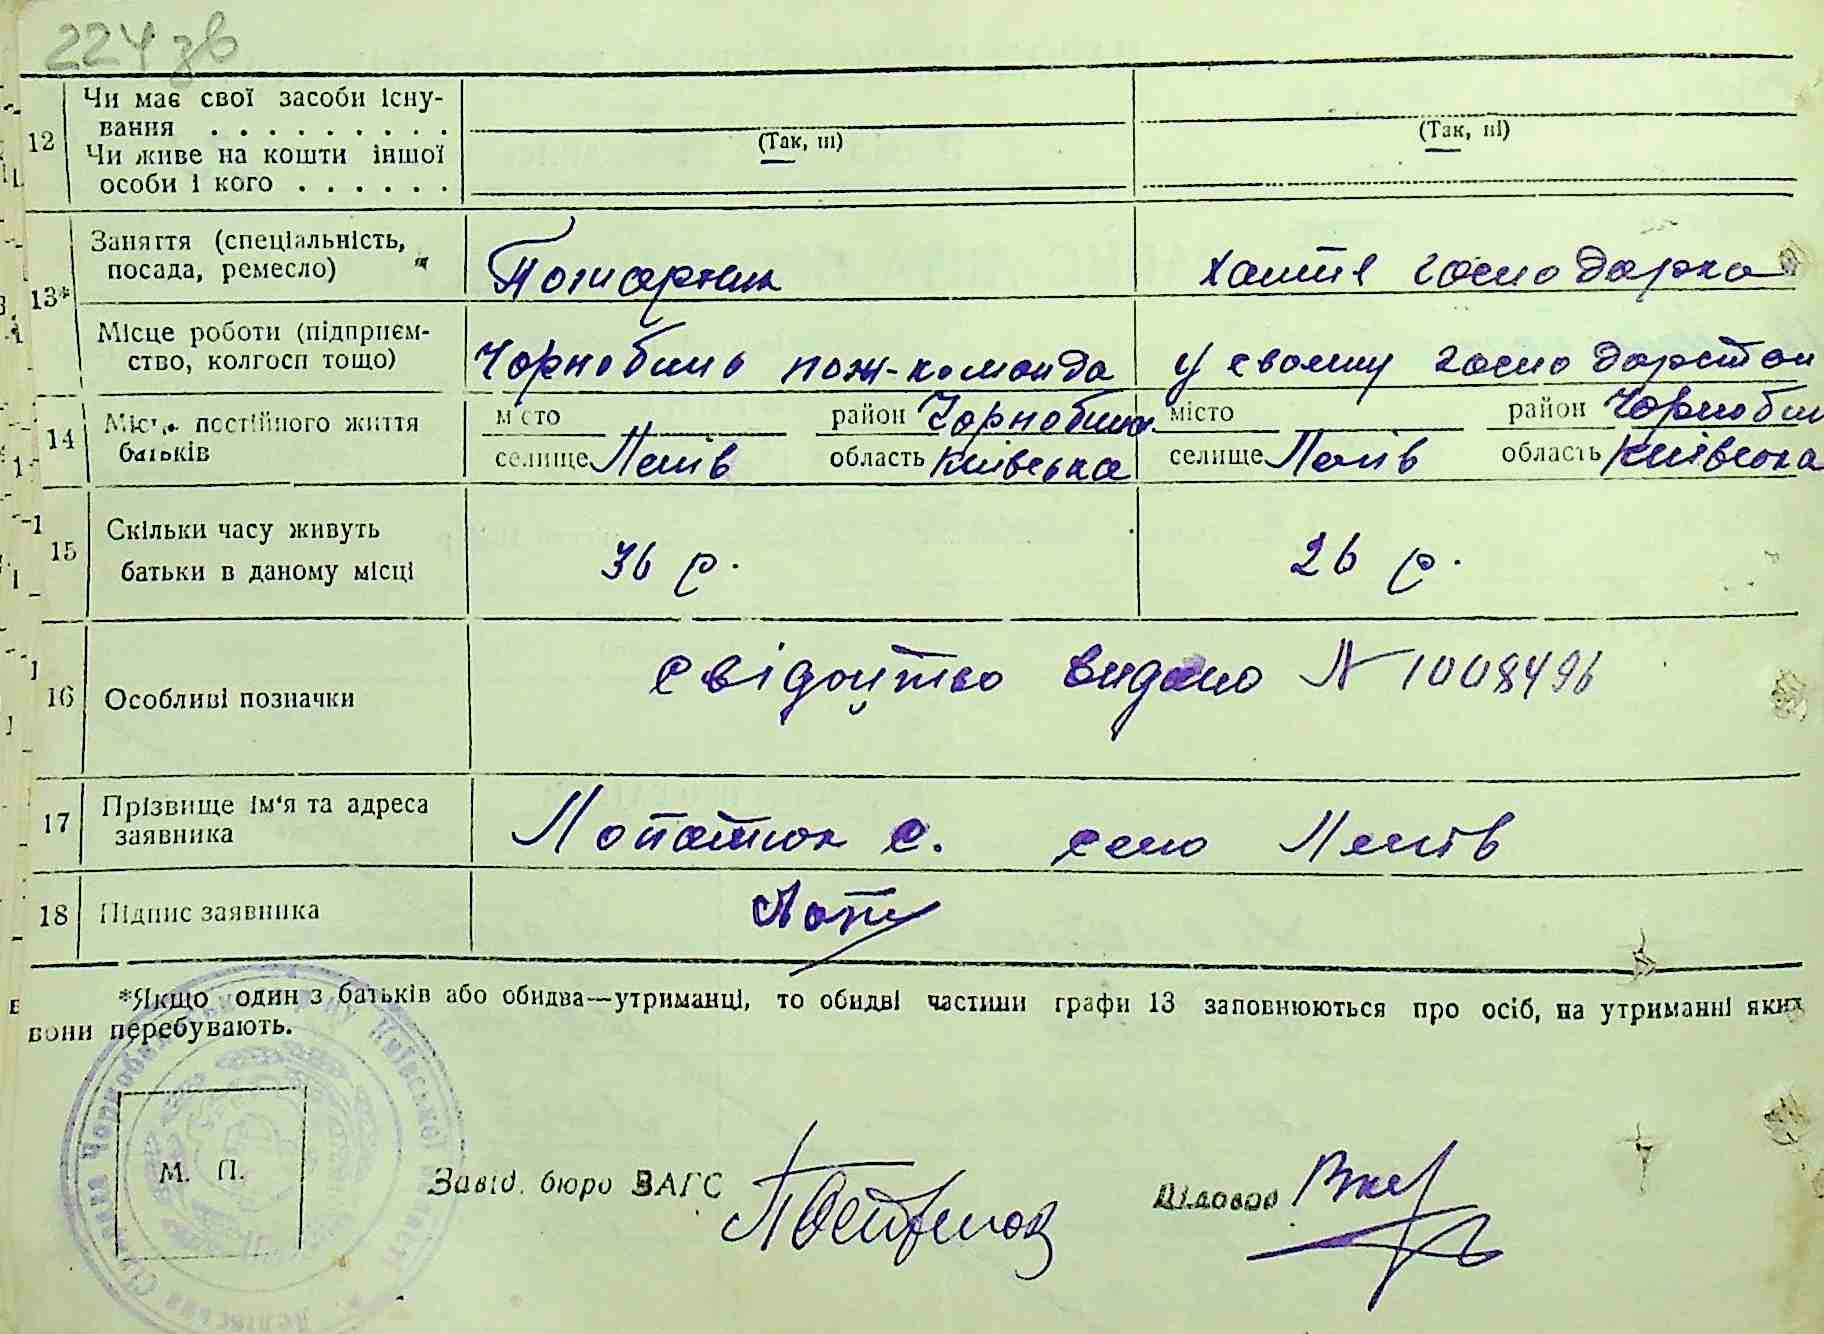 224 зв
12 Чи має свої засоби існу-
вання . . . . . . . . . (Так, ні) (Так, ні)
Чи живе на кошти іншої
особи і кого . . . . . .
13* Заняття (спеціальність,
посада, ремесло) Пожарник хатня господарка
Місце роботи (підприєм-
ство, колгосп тощо) Чорнобиль пож-команда у своему господарстві
14 Місце постійного життя
батьків
місто район Чорнобиль місто район Чорнобил
селище Лелів область Київська селище Лелів область Київська
15 Скільки часу живуть
батьки в даному місці 36 р. 26 р.
16 Особливі позначки свідоцтво видано № 1008496
17 Прізвище ім'я та адреса
заявника Лопатюк С. село Лелів
18 Підпис заявника Лоп
*Якщо один з батьків або обидва—утриманці, то обидві частини графи 13 заповнюються про осіб, на утриманні яких
вони перебувають.
М. П.
Завід. бюро ВАГС Діловод